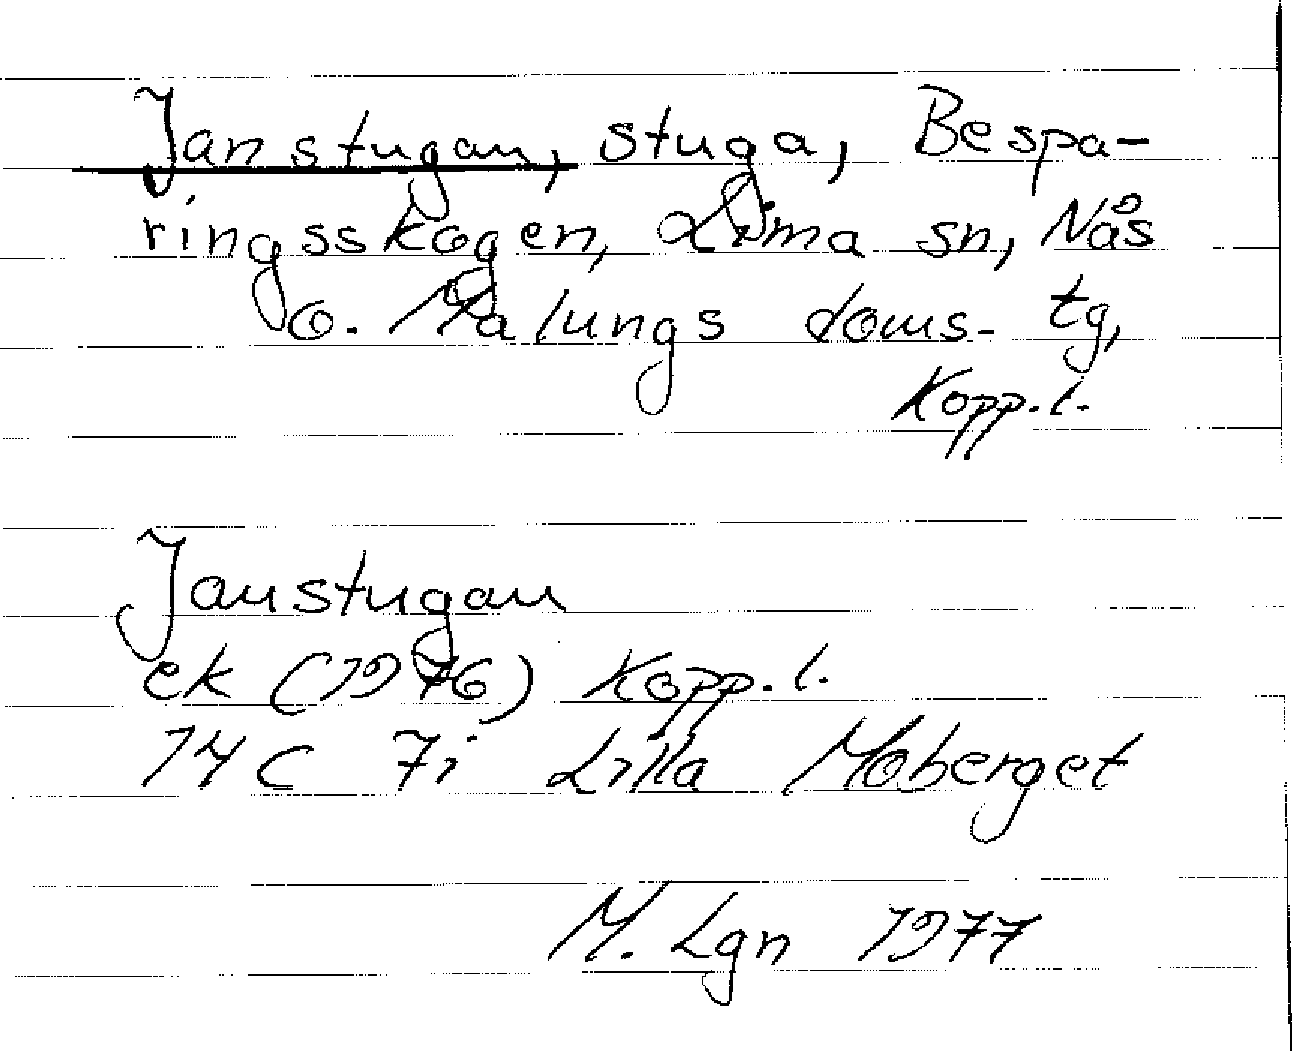 Janstugan, stuga, Bespa-
ringsskogen, Lima sn, Nås
o. Malungs doms- tg,
Kopp. l.
Janstugan
ek (1976) Kopp. l.
14C 7i Lilla Moberget
M. Lgn 1977